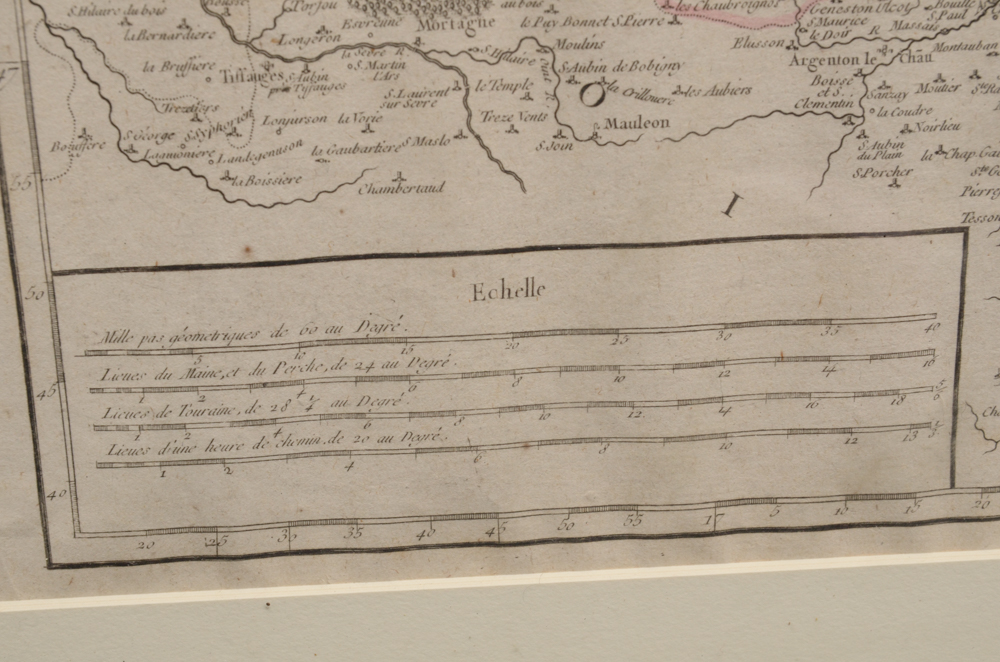 S. Hilaire du bois
la Bernardiere
Longeron
Mortagne
le Puy Bonnet S. Pierre
les Chaubroignes
S. Maurice
le Doir R
Massais
S. Paul
Elusson
Moulins
S. Hilaire
la Sevre R
la Bruffiere
Tiffauges
S. Aubin
près Tiffauges
S. Martin
l'Ars
S. Aubin de Bobigny
Argenton le Chau
Montauban
S. Laurent
sur Sevre
le Temple
la Crilloure
les Aubiers
Boisse
et S.
Clementin
Sanzay
Moutier
la Coudre
Treize Vents
Mauleon
S. George
S. Symphorien
la Verie
Noirlieu
Boussere
la Gaubartiere
S. Maslo
S. Join
S. Aubin
du Plain
la Chap. Gau
la Boissiere
Chambertaud
S. Porcher
Pierre
Tesson
O
I
55
50
45
40
Echelle
Mille pas géometriques de 60 au Degré.
5 10 15 20 25 30 35 40
Lieues du Maine, et du Perche, de 24 au Degré.
1 2 4 6 8 10 12 14 16
Lieues de Touraine, de 28 4/7 au Degré.
1 2 4 6 8 10 12 14 16 18
Lieues d'une heure de chemin, de 20 au Degré.
1 2 4 6 8 10 12 13 1/3
20 25 30 35 40 45 50 55 17 5 10 15 20